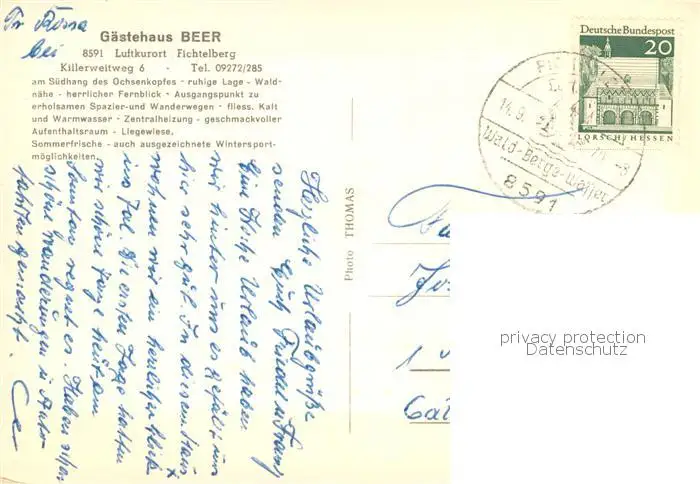 Fr. Rosa
bei
Gästehaus BEER
8591 Luftkurort Fichtelberg
Killerweitweg 6 - Tel. 09272/285
am Südhang des Ochsenkopfes - ruhige Lage - Wald-
nähe - herrlicher Fernblick - Ausgangspunkt zu
erholsamen Spazier-und Wanderwegen - fliess. Kalt
und Warmwasser - Zentralheizung - geschmackvoller
Aufenthaltsraum - Liegewiese.
Sommerfrische - auch ausgezeichnete Wintersport-
möglichkeiten.
Herzliche Urlaubsgrüße
senden Euch
Eine Woche Urlaub haben
wir hinter uns es gefällt uns
hier sehr gut. In diesem Haus
wohnen wir ein
ins Tal. Die ersten Tage hatten
wir schöne Tage heute am
Sonntag regnet es. Haben schon
schöne Wanderungen u. Auto-
fahrten gemacht.
Photo THOMAS
Deutsche Bundespost
20
LORSCH/HESSEN
14.9.
Wald-Berge-Wasser
8591
privacy protection
Datenschutz